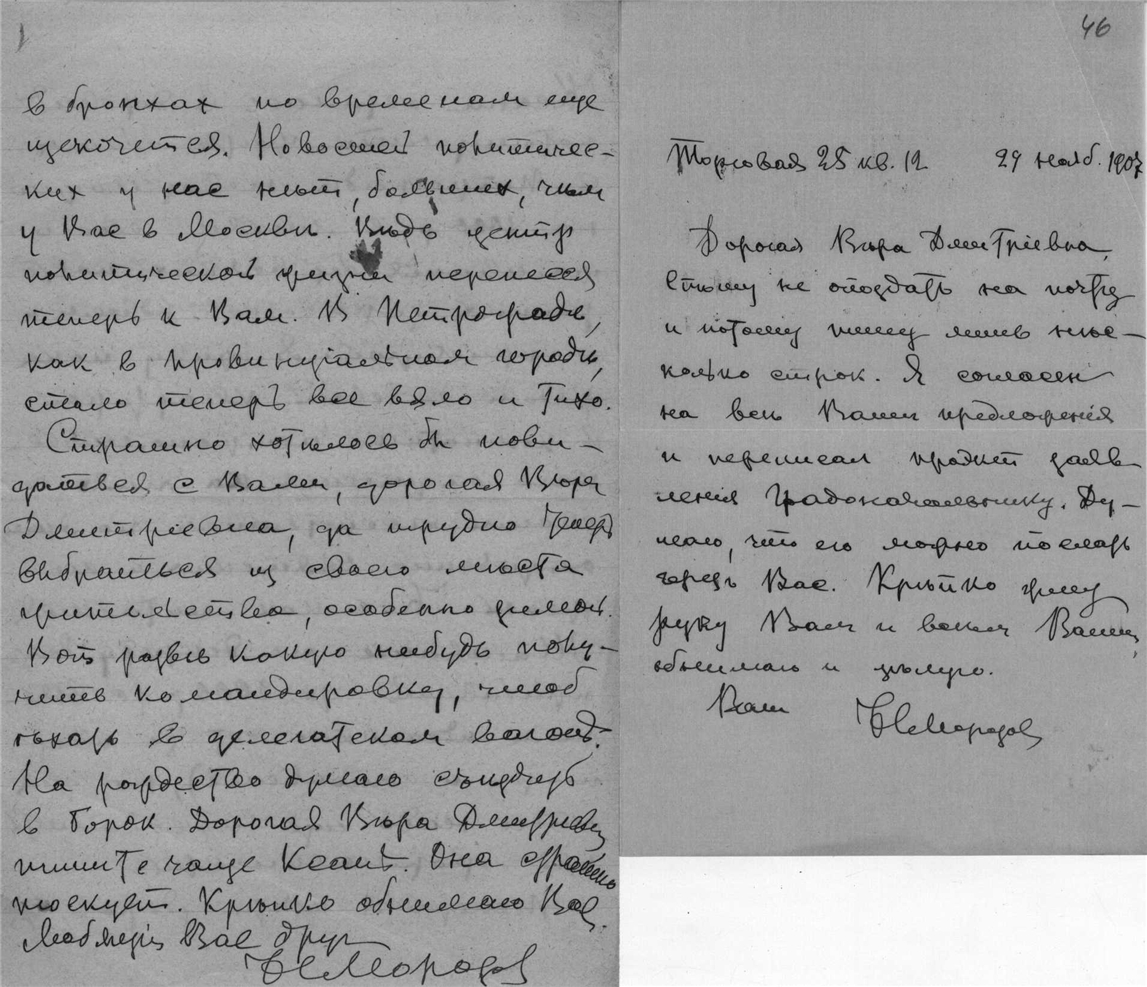 в бронхах по временам еще
щекочется. Новостей политичес-
ких у нас нѣт, больших, чѣм
у Вас в Москвѣ. Вѣдь центр
политической жизни перенесся
теперь к Вам. В Петроградѣ,
как в провинціальном городѣ,
стало теперь все вяло и тихо.
Страшно хотѣлось бы пови-
даться с Вами, дорогая Вѣра
Дмитріевна, да трудно теперь
выбраться из своего мѣста
жительства, особенно зимой.
Вот развѣ какую нибудь полу-
чить командировку, чтоб
ѣхать в делегатском вагонѣ.
На рождество думаю съѣздить
в Борок. Дорогая Вѣра Дмитріевна
пишите чаще Ксанѣ. Она страшно
тоскует. Крѣпко обнимаю Вас.
Любящій Вас друг
Н Морозов
46
Торговая 25 кв. 12 29 нояб. 1907
Дорогая Вѣра Дмитріевна,
Спѣшу не опоздать на почту
и потому пишу лишь нѣс-
колько строк. Я согласен
на всѣ Ваши предложенія
и переписал проэкт заяв-
ленія Градоначальнику. Ду-
маю, что его можно послать
через Вас. Крѣпко жму
руку Вам и всѣм Вашим,
обнимаю и цѣлую.
Ваш
Н Морозов